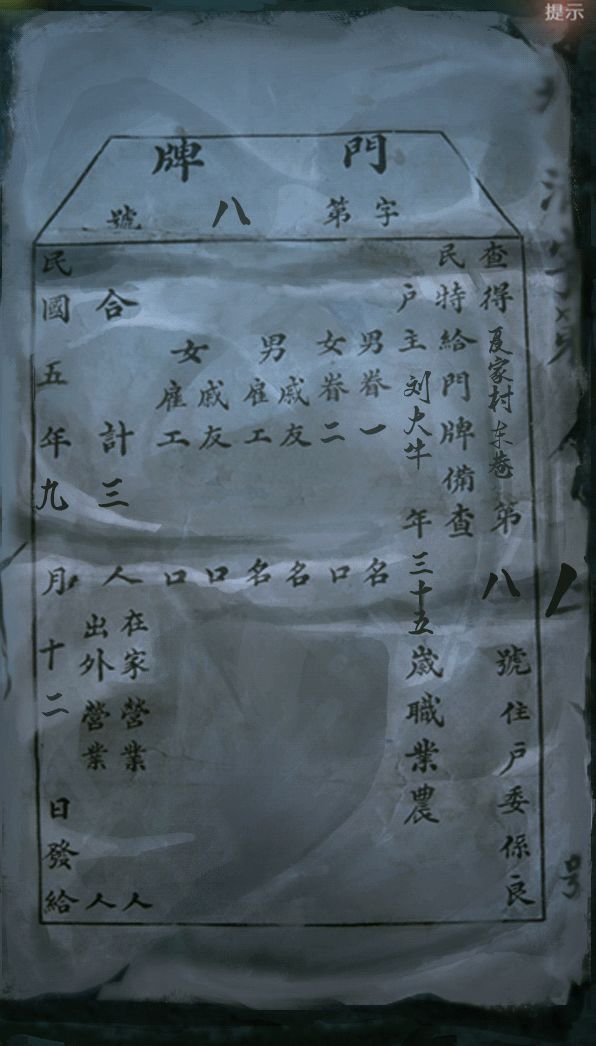 提示
門牌
字第八號
查得夏家村东巷第八號住戶委係良
民特給門牌備查
戶主刘大牛年三十五歲職業農
男眷一名
女眷二口
男戚友名
男雇工名
女戚友口
女雇工口
合計三人
在家營業人
出外營業人
民國五年九月十二日發給
号